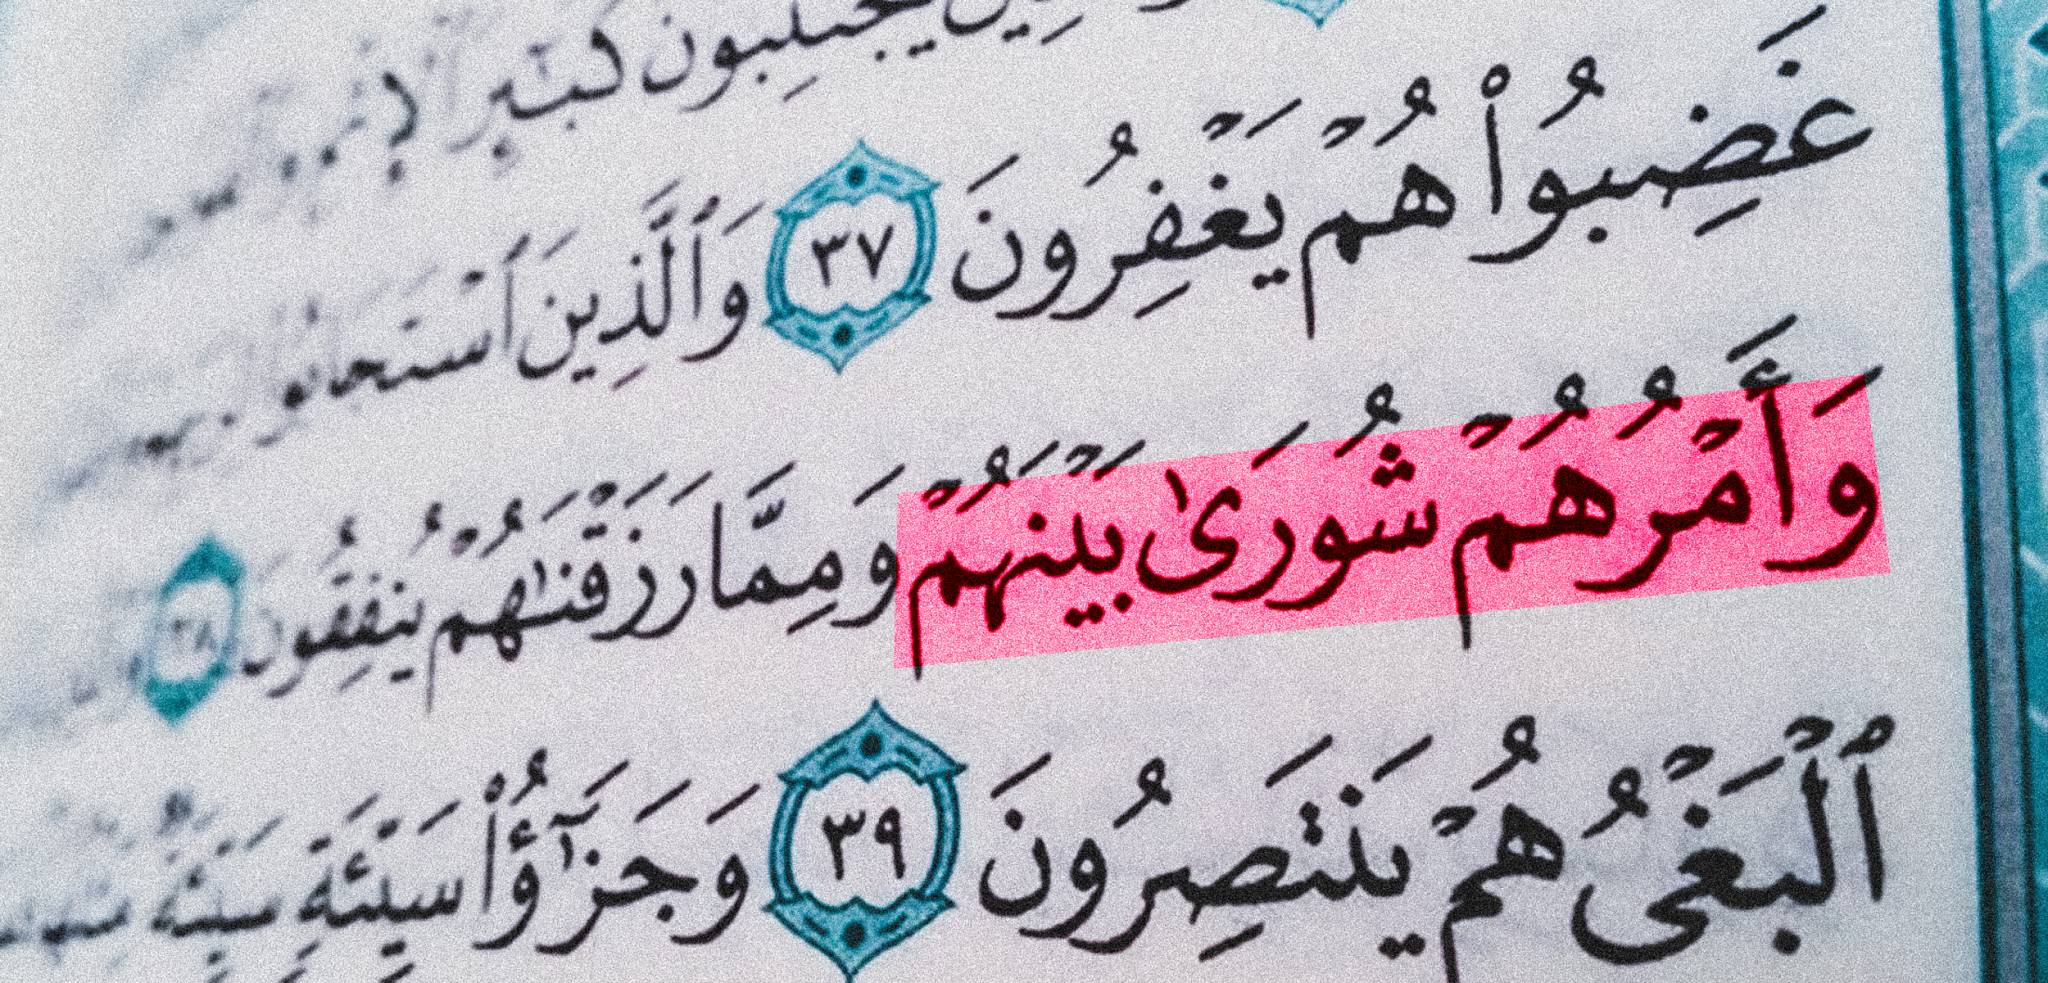 يَجْتَنِبُونَ كَبَٰٓئِرَ
غَضِبُوا۟ هُمْ يَغْفِرُونَ ٣٧ وَٱلَّذِينَ ٱسْتَجَابُوا۟
وَأَمْرُهُمْ شُورَىٰ بَيْنَهُمْ وَمِمَّا رَزَقْنَٰهُمْ يُنفِقُونَ ٣٨
ٱلْبَغْىُ هُمْ يَنتَصِرُونَ ٣٩ وَجَزَٰٓؤُا۟ سَيِّئَةٍ سَيِّئَةٌ